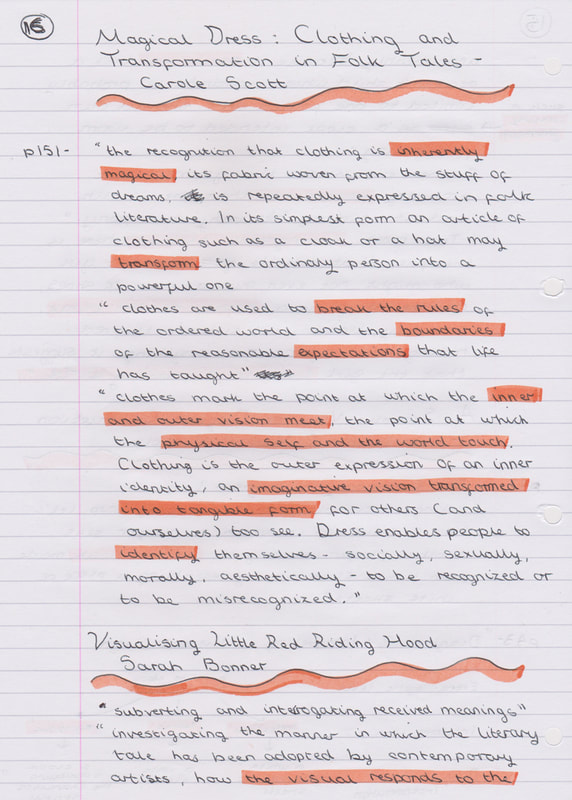 16
Magical Dress : Clothing and
Transformation in Folk Tales -
Carole Scott
p151-
"the recognition that clothing is inherently
magical, its fabric woven from the stuff of
dreams, is repeatedly expressed in folk
literature. In its simplest form an article of
clothing such as a cloak or a hat may
transform the ordinary person into a
powerful one
" clothes are used to break the rules of
the ordered world and the boundaries
of the reasonable expectations that life
has taught"
" clothes mark the point at which the inner
and outer vision meet, the point at which
the physical self and the world touch.
Clothing is the outer expression of an inner
identity, an imaginative vision transformed
into tangible form for others (and
ourselves) too see. Dress enables people to
identify themselves - socially, sexually,
morally, aesthetically - to be recognized or
to be misrecognized."
Visualising Little Red Riding Hood
Sarah Bonner
"subverting and interogating received meanings"
"investigating the manner in which the literary
tale has been adopted by contemporary
artists, how the visual responds to the